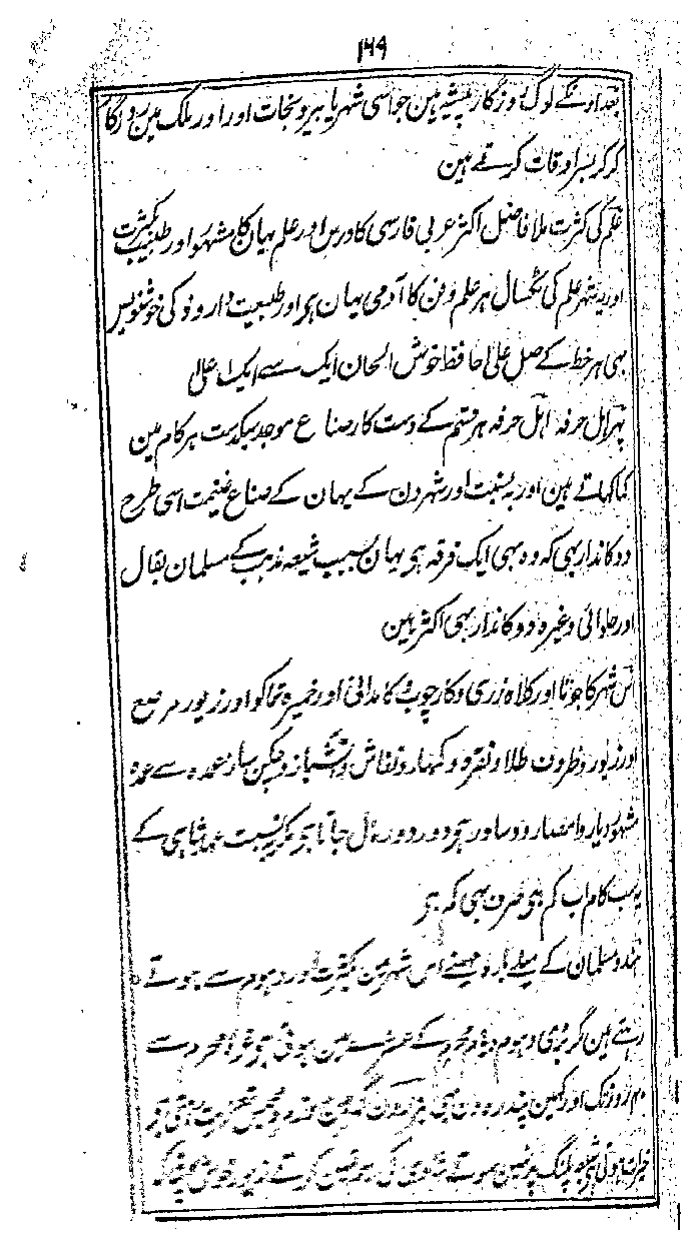 ۱۴۹
بعد اونکے لوگ روزگار پیشہ ہین جو اسی شہر یا بیرونجات اور اور ملک مین روزگار
کر کر بسر اوقات کرتے ہین
علم کی کثرت ملا فاضل اکثر عربی فارسی کا درس اور علم یہان کا مشہور اور طبیب بکثرت
اور یہ شہر علم کی ٹکسال ہر علم و فن کا آدمی یہان ہی اور طبیعت دار ونوکی خوشنویس
بہی ہر خط کے صل علی حافظ خوش الحان ایک سے ایک اعلی
پہر اہل حرفہ اہل حرفہ ہر قسم کے دست کار صناع موجد سبکدست ہر کام مین
کہلاتے ہین اور بہ نسبت اور شہرون کے یہان کے صناع غنیمت اسی طرح
دوکاندار بہی کہ وہ بہی ایک فرقہ ہی یہان بسبب شیعہ مذہب کے مسلمان بقال
اور حلوائی وغیرہ دوکاندار بہی اکثر ہین
اس شہر کا جوتا اور کلاہ زری و کارچوب کامدانی اور خمیرہ تماکو اور زیور مرصع
اور زیور و ظروف طلا و نقرہ و کمہار و نقاش و آتشباز و چکن ساز عمدہ سے عمدہ
مشہور دیار و امصار دور دور مال جاتا ہی مگر بہ نسبت عہد شاہی کے
یہ سب کام اب کم ہی صرف بہی کم ہی
ہندو مسلمان کے میلے بارہ مہینے اس شہر مین بکثرت اور دہوم سے ہوتے
رہتے ہین مگر بڑی دہوم کے عشرے مین ہوتی ہی
روز تک اور کہین پندرہ دن بہی
خیرات ہوتی ہی شیعہ پلنگ پر نہین سوتے شادی کی نہین کرتے زیور